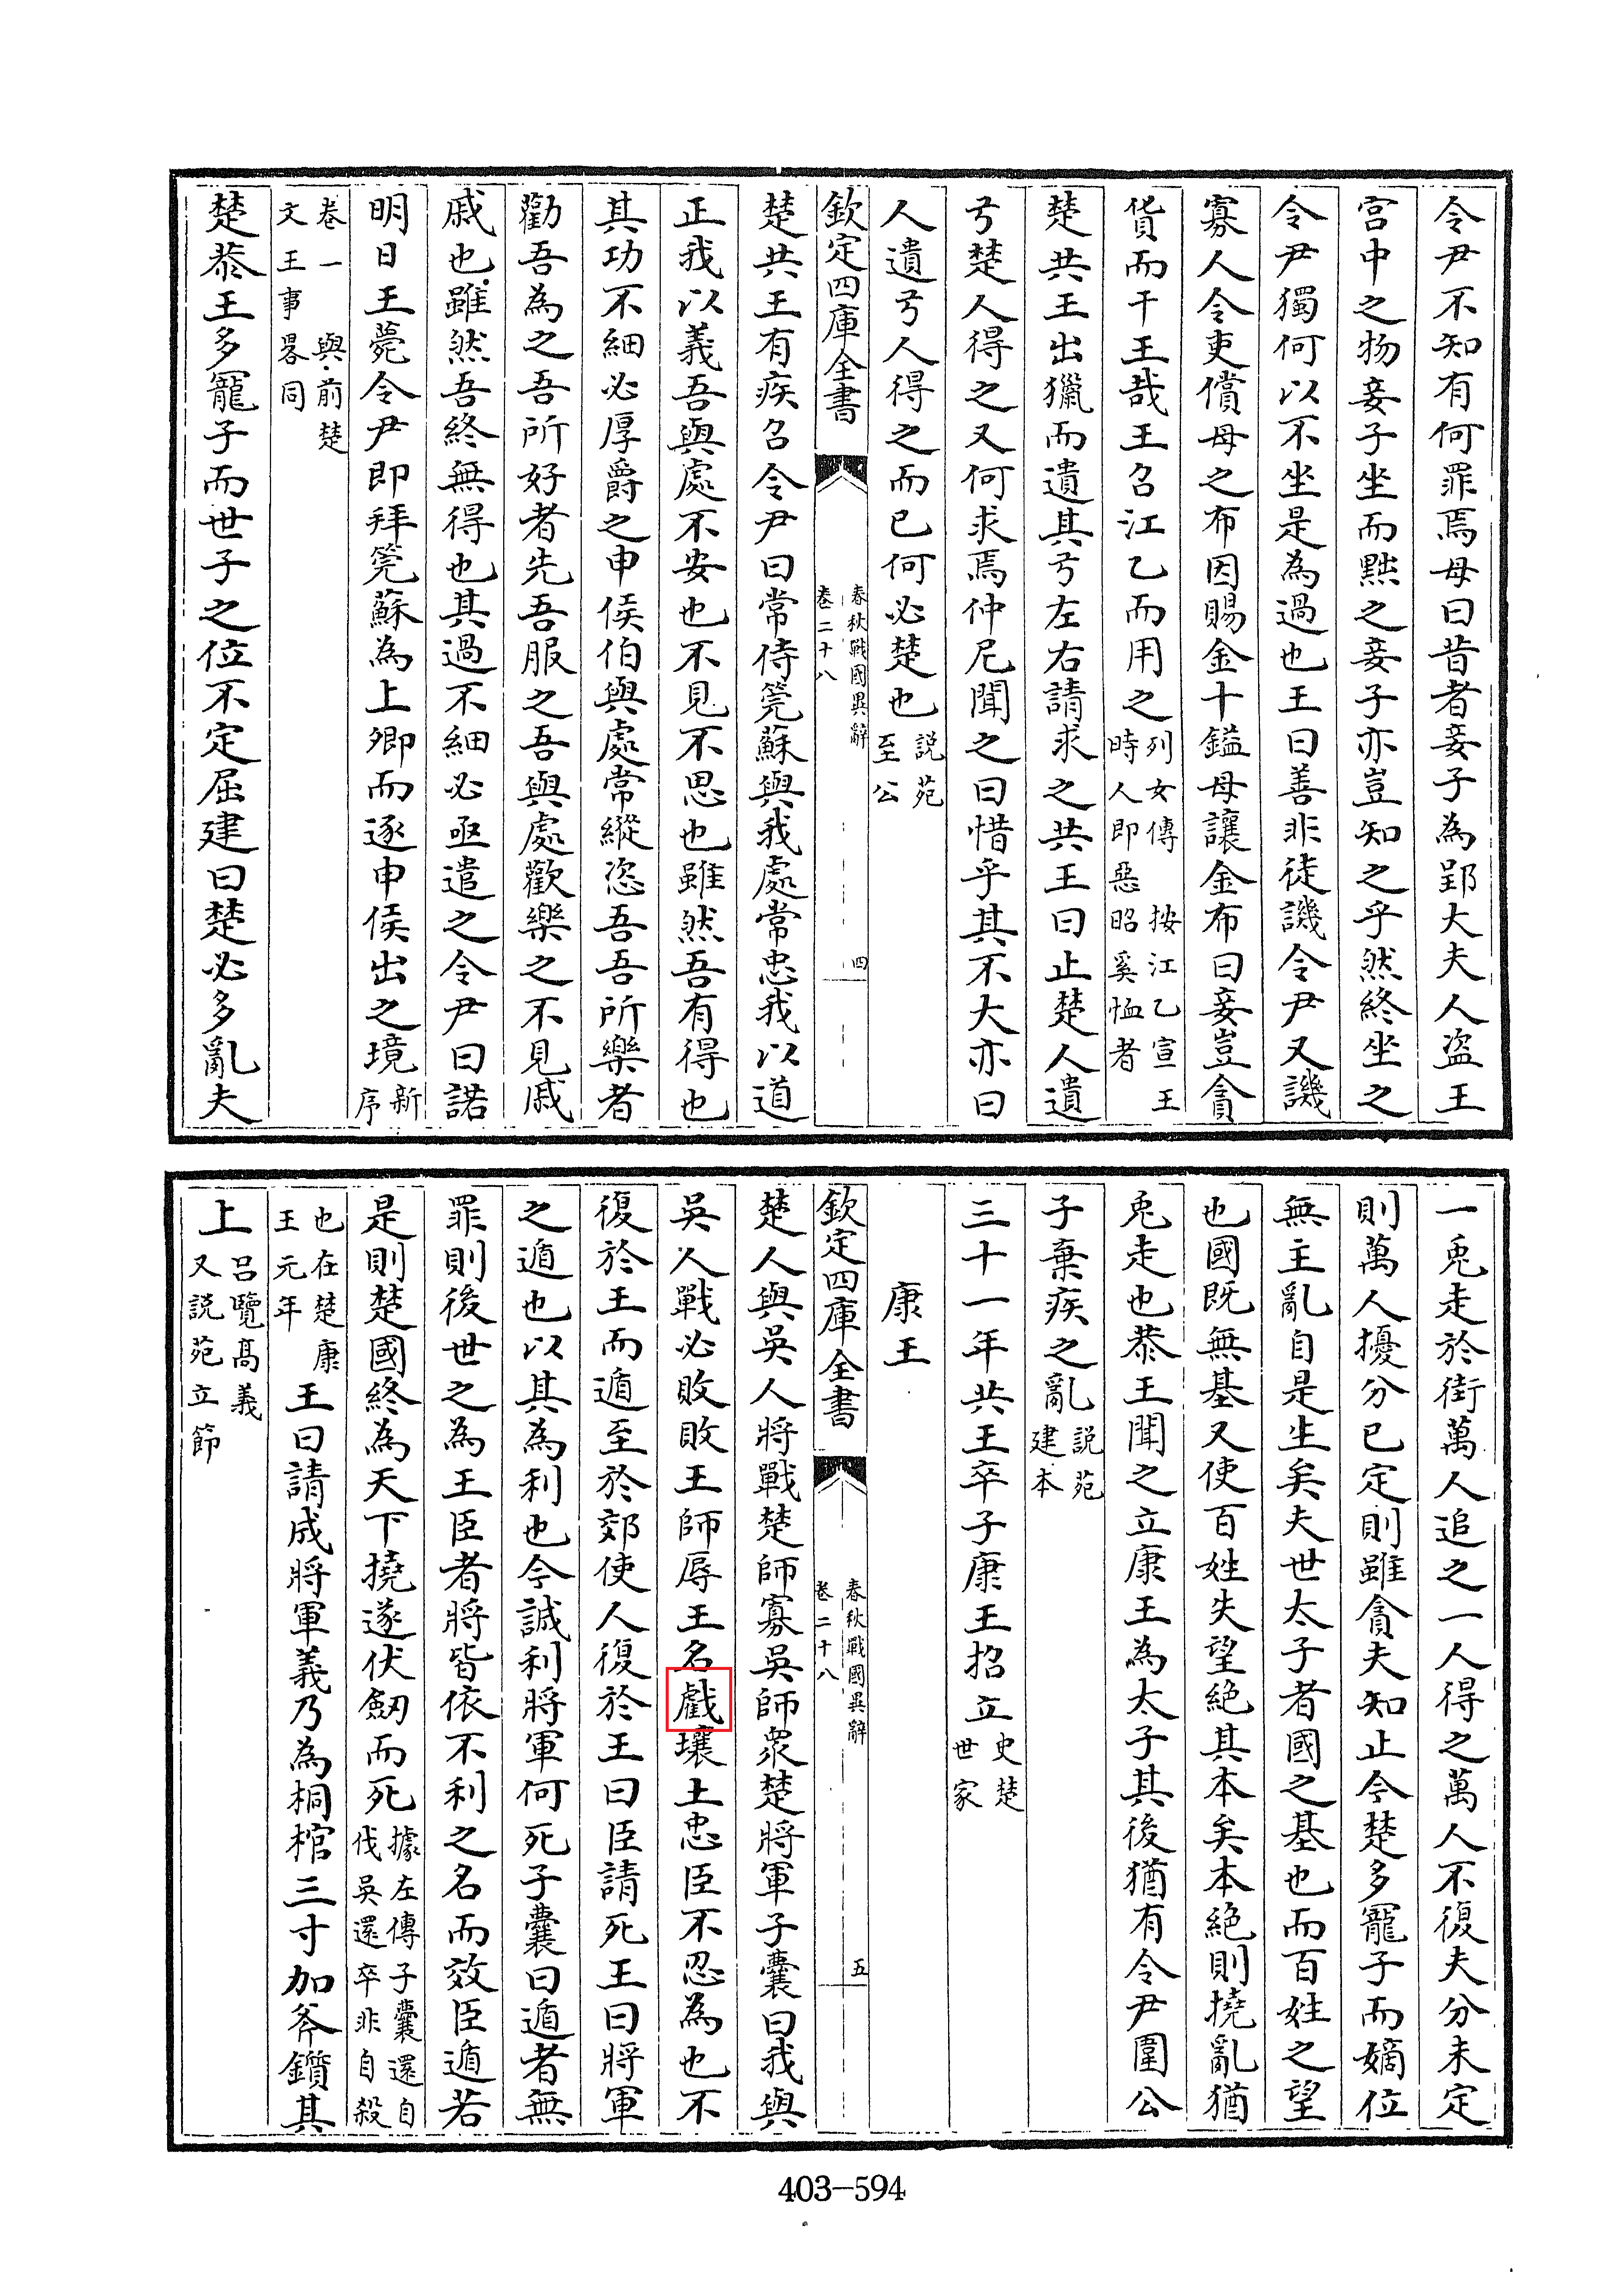 令尹不知有何罪焉母曰昔者妾子為郢大夫人盜王
宫中之物妾子坐而黜之妾子亦豈知之乎然終坐之
令尹獨何以不坐是為過也王曰善非徒譏令尹又譏
寡人令吏償母之布因賜金十鎰母讓金布曰妾豈貪
貨而干王哉王召江乙而用之列女傳 按江乙宣王時人即惡昭奚恤者
楚共王出獵而遺其弓左右請求之共王曰止楚人遺
弓楚人得之又何求焉仲尼聞之曰惜乎其不大亦曰
人遺弓人得之而已何必楚也説苑至公
欽定四庫全書
春秋戰國異辭
卷二十八
四
楚共王有疾召令尹曰常侍筦蘇與我處常忠我以道
正我以義吾與處不安也不見不思也雖然吾有得也
其功不細必厚爵之申侯伯與處常縱恣吾吾所樂者
勸吾為之吾所好者先吾服之吾與處歡樂之不見戚
戚也雖然吾終無得也其過不細必亟遣之令尹曰諾
明日王薨令尹即拜筦蘇為上卿而逐申侯出之境新序
卷一 與前楚文王事畧同
楚恭王多寵子而世子之位不定屈建曰楚必多亂夫
一兎走於街萬人追之一人得之萬人不復夫分未定
則萬人擾分已定則雖貪夫知止今楚多寵子而嫡位
無主亂自是生矣夫世太子者國之基也而百姓之望
也國既無基又使百姓失望絶其本矣本絶則撓亂猶
兎走也恭王聞之立康王為太子其後猶有令尹圍公
子棄疾之亂説苑建本
三十一年共王卒子康王招立史楚世家
康王
欽定四庫全書
春秋戰國異辭
卷二十八
五
楚人與吳人將戰楚師寡吳師衆楚將軍子囊曰我與
吳人戰必敗敗王師辱王名戱壤土忠臣不忍為也不
復於王而遁至於郊使人復於王曰臣請死王曰將軍
之遁也以其為利也今誠利將軍何死子囊曰遁者無
罪則後世之為王臣者將皆依不利之名而效臣遁若
是則楚國終為天下撓遂伏劒而死據左傳子囊還自伐吳還卒非自殺
也在楚康王元年王曰請成將軍義乃為桐棺三寸加斧鑕其
上吕覽高義又説苑立節
403-594